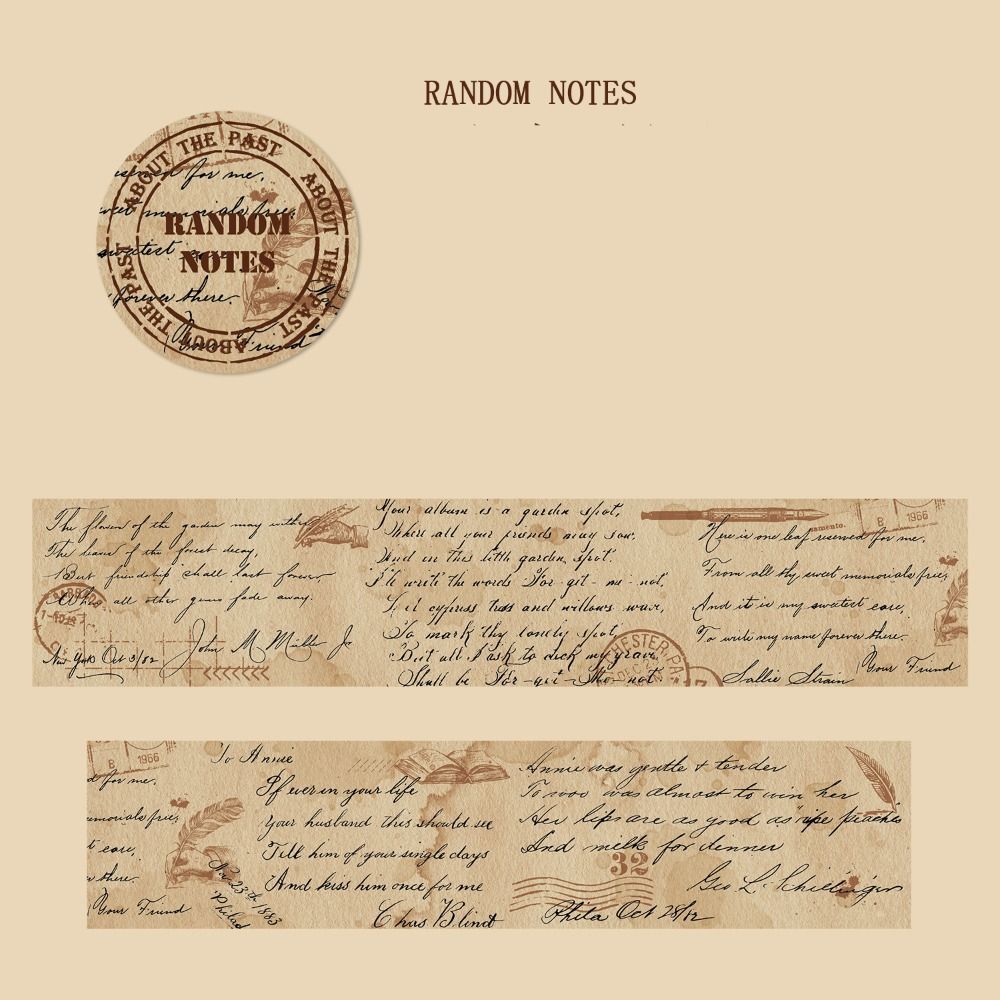 RANDOM NOTES
ABOUT THE PAST ABOUT THE PAST ABOUT THE PAST
for me,
sweet memorials free,
RANDOM
sweetest
NOTES
forever there.
Your Friend
The flowers of the garden may wither
The leaves of the forest decay,
But friendship shall last forever
When all other gems fade away.
New York Oct 3/82 John M Miller Jr
Your album is a garden spot,
Where all your friends may sow,
And in this little garden spot
I'll write the words For-get-me-not,
Let cypress trees and willows wave,
To mark thy lonely spot,
But all I ask to deck my grave
Shall be For-get-Me-not
CHESTER, PA
samento.
B 1966
Here is one leaf reserved for me,
From all thy sweet memorials free;
And it is my sweetest care,
To write my name forever there.
Your Friend
Sallie Strain
B 1966
for me,
memorials free;
care,
there.
Your Friend
Nov 23th 1883
Philad
To Annie
If ever in your life
Your husband this should see
Tell him of your single days
And kiss him once for me
Chas Blind
Annie was gentle & tender
To woo was almost to win her
Her lips are as good as "ripe peaches
And milk for dinner
32
Geo L. Schillinger
Phila Oct 28/82